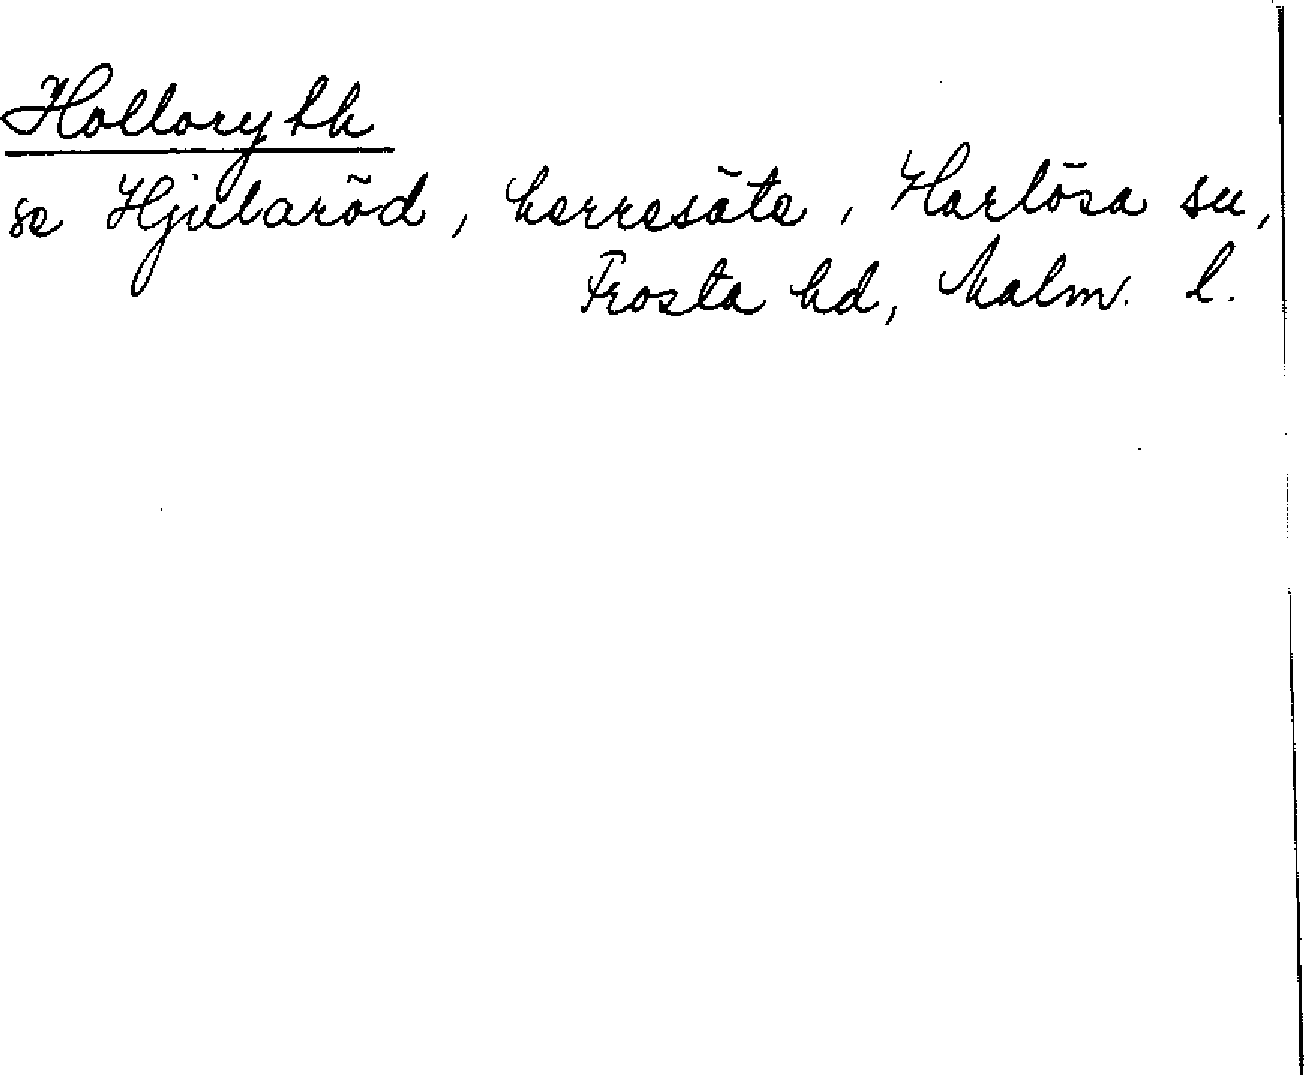 Holloryth
se Hjularöd, herresäte, Harlösa sn,
Frosta hd, Malm. l.